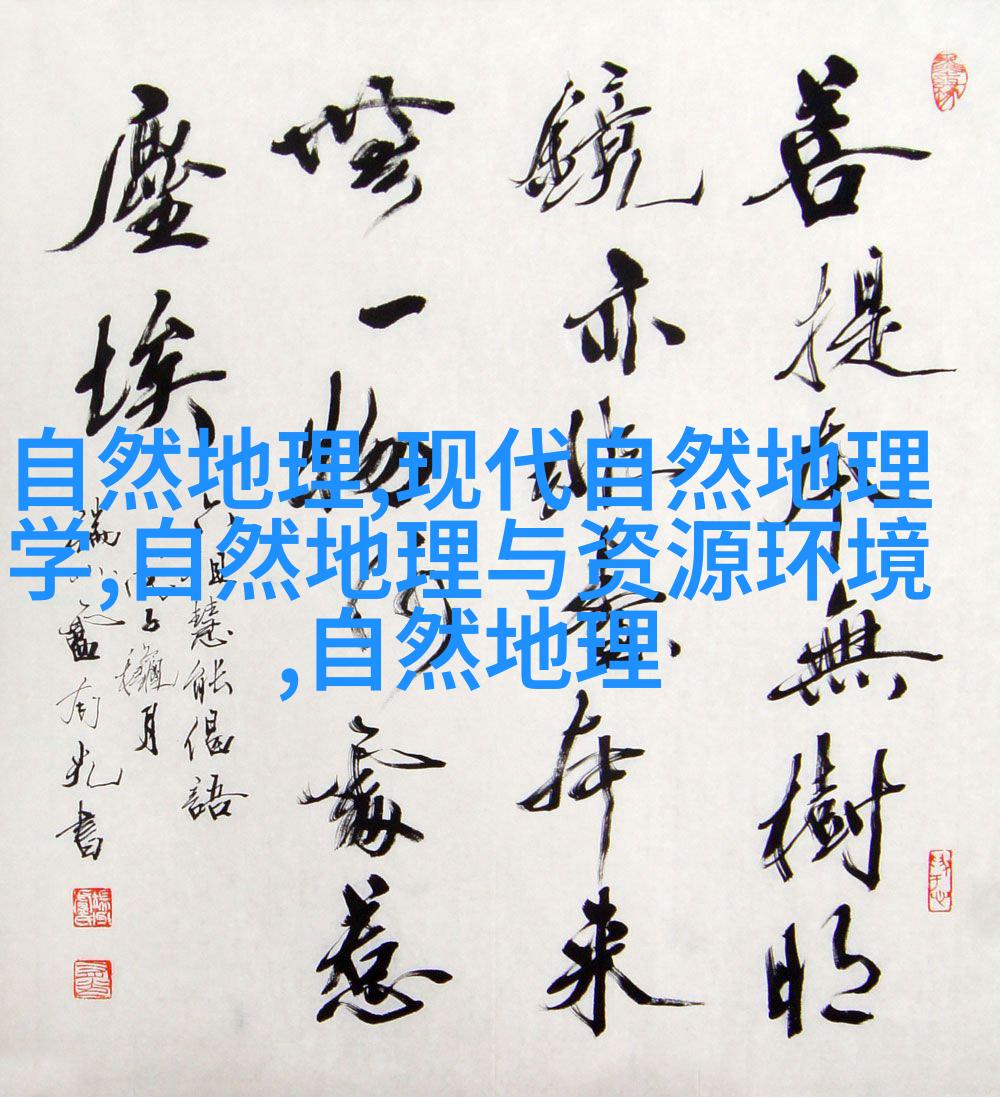 自然地理,现代自然地理
学,自然地理与资源环境
,自然地理
菩提本無樹明
鏡亦非臺本来
無一物何處惹
塵埃
六祖慧能偈語
戊子穐月
盧有光書